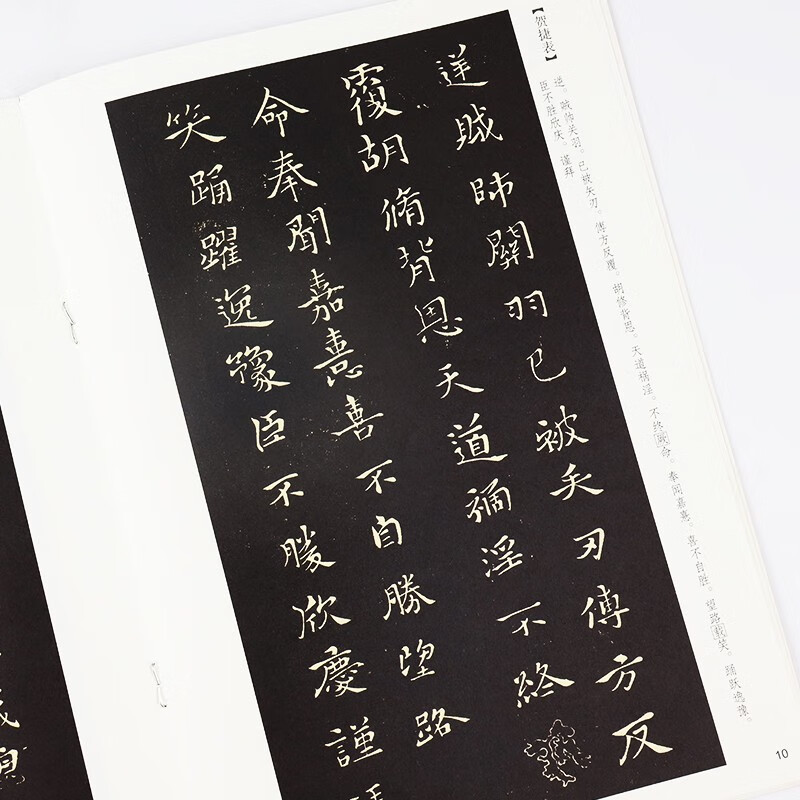 【贺捷表】
逆。贼帅关羽。已被矢刃。傅方反覆。胡修背恩。天道祸淫。不终厥命。奉闻嘉憙。喜不自胜。望路载笑。踊跃逸豫。
臣不胜欣庆。谨拜
逆賊帥關羽已被矢刃傅方反
覆胡脩背恩天道禍淫不終
命奉聞嘉憙喜不自勝望路
笑踊躍逸豫臣不勝欣慶謹
10